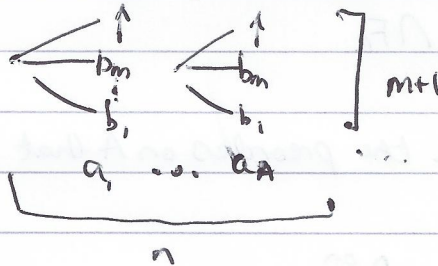 ↑ ↑
bm bm
m+1
⋮
b₁ b₁
a₁ ... aA ...
n